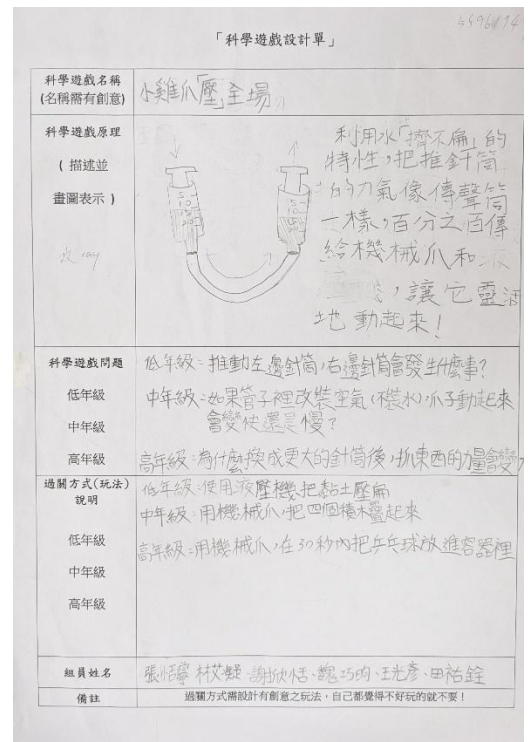 「科學遊戲設計單」
科學遊戲名稱
(名稱需有創意)
小雞爪「壓」全場
科學遊戲原理
( 描述並
畫圖表示 )
利用水「擠不扁」的
特性,把推針筒
的力氣像傳聲筒
一樣,百分之百傳
給機械爪和
,讓它靈活
地動起來!
科學遊戲問題
低年級
中年級
高年級
低年級:推動左邊針筒,右邊針筒會發生什麼事?
中年級:如果管子裡改裝空氣(不裝水),爪子動起來
會變快還是慢?
高年級:為什麼換成更大的針筒後,抓東西的力量會變
過關方式(玩法)
說明
低年級
中年級
高年級
低年級:使用液壓機把黏土壓扁
中年級:用機械爪,把四個積木疊起來
高年級:用機械爪,在30秒內把乒乓球放進容器裡
組員姓名
張恬寧 林艾凝、謝欣恬、魏巧昀、王光彥、田祐銓
備註
過關方式需設計有創意之玩法,自己都覺得不好玩的就不要!